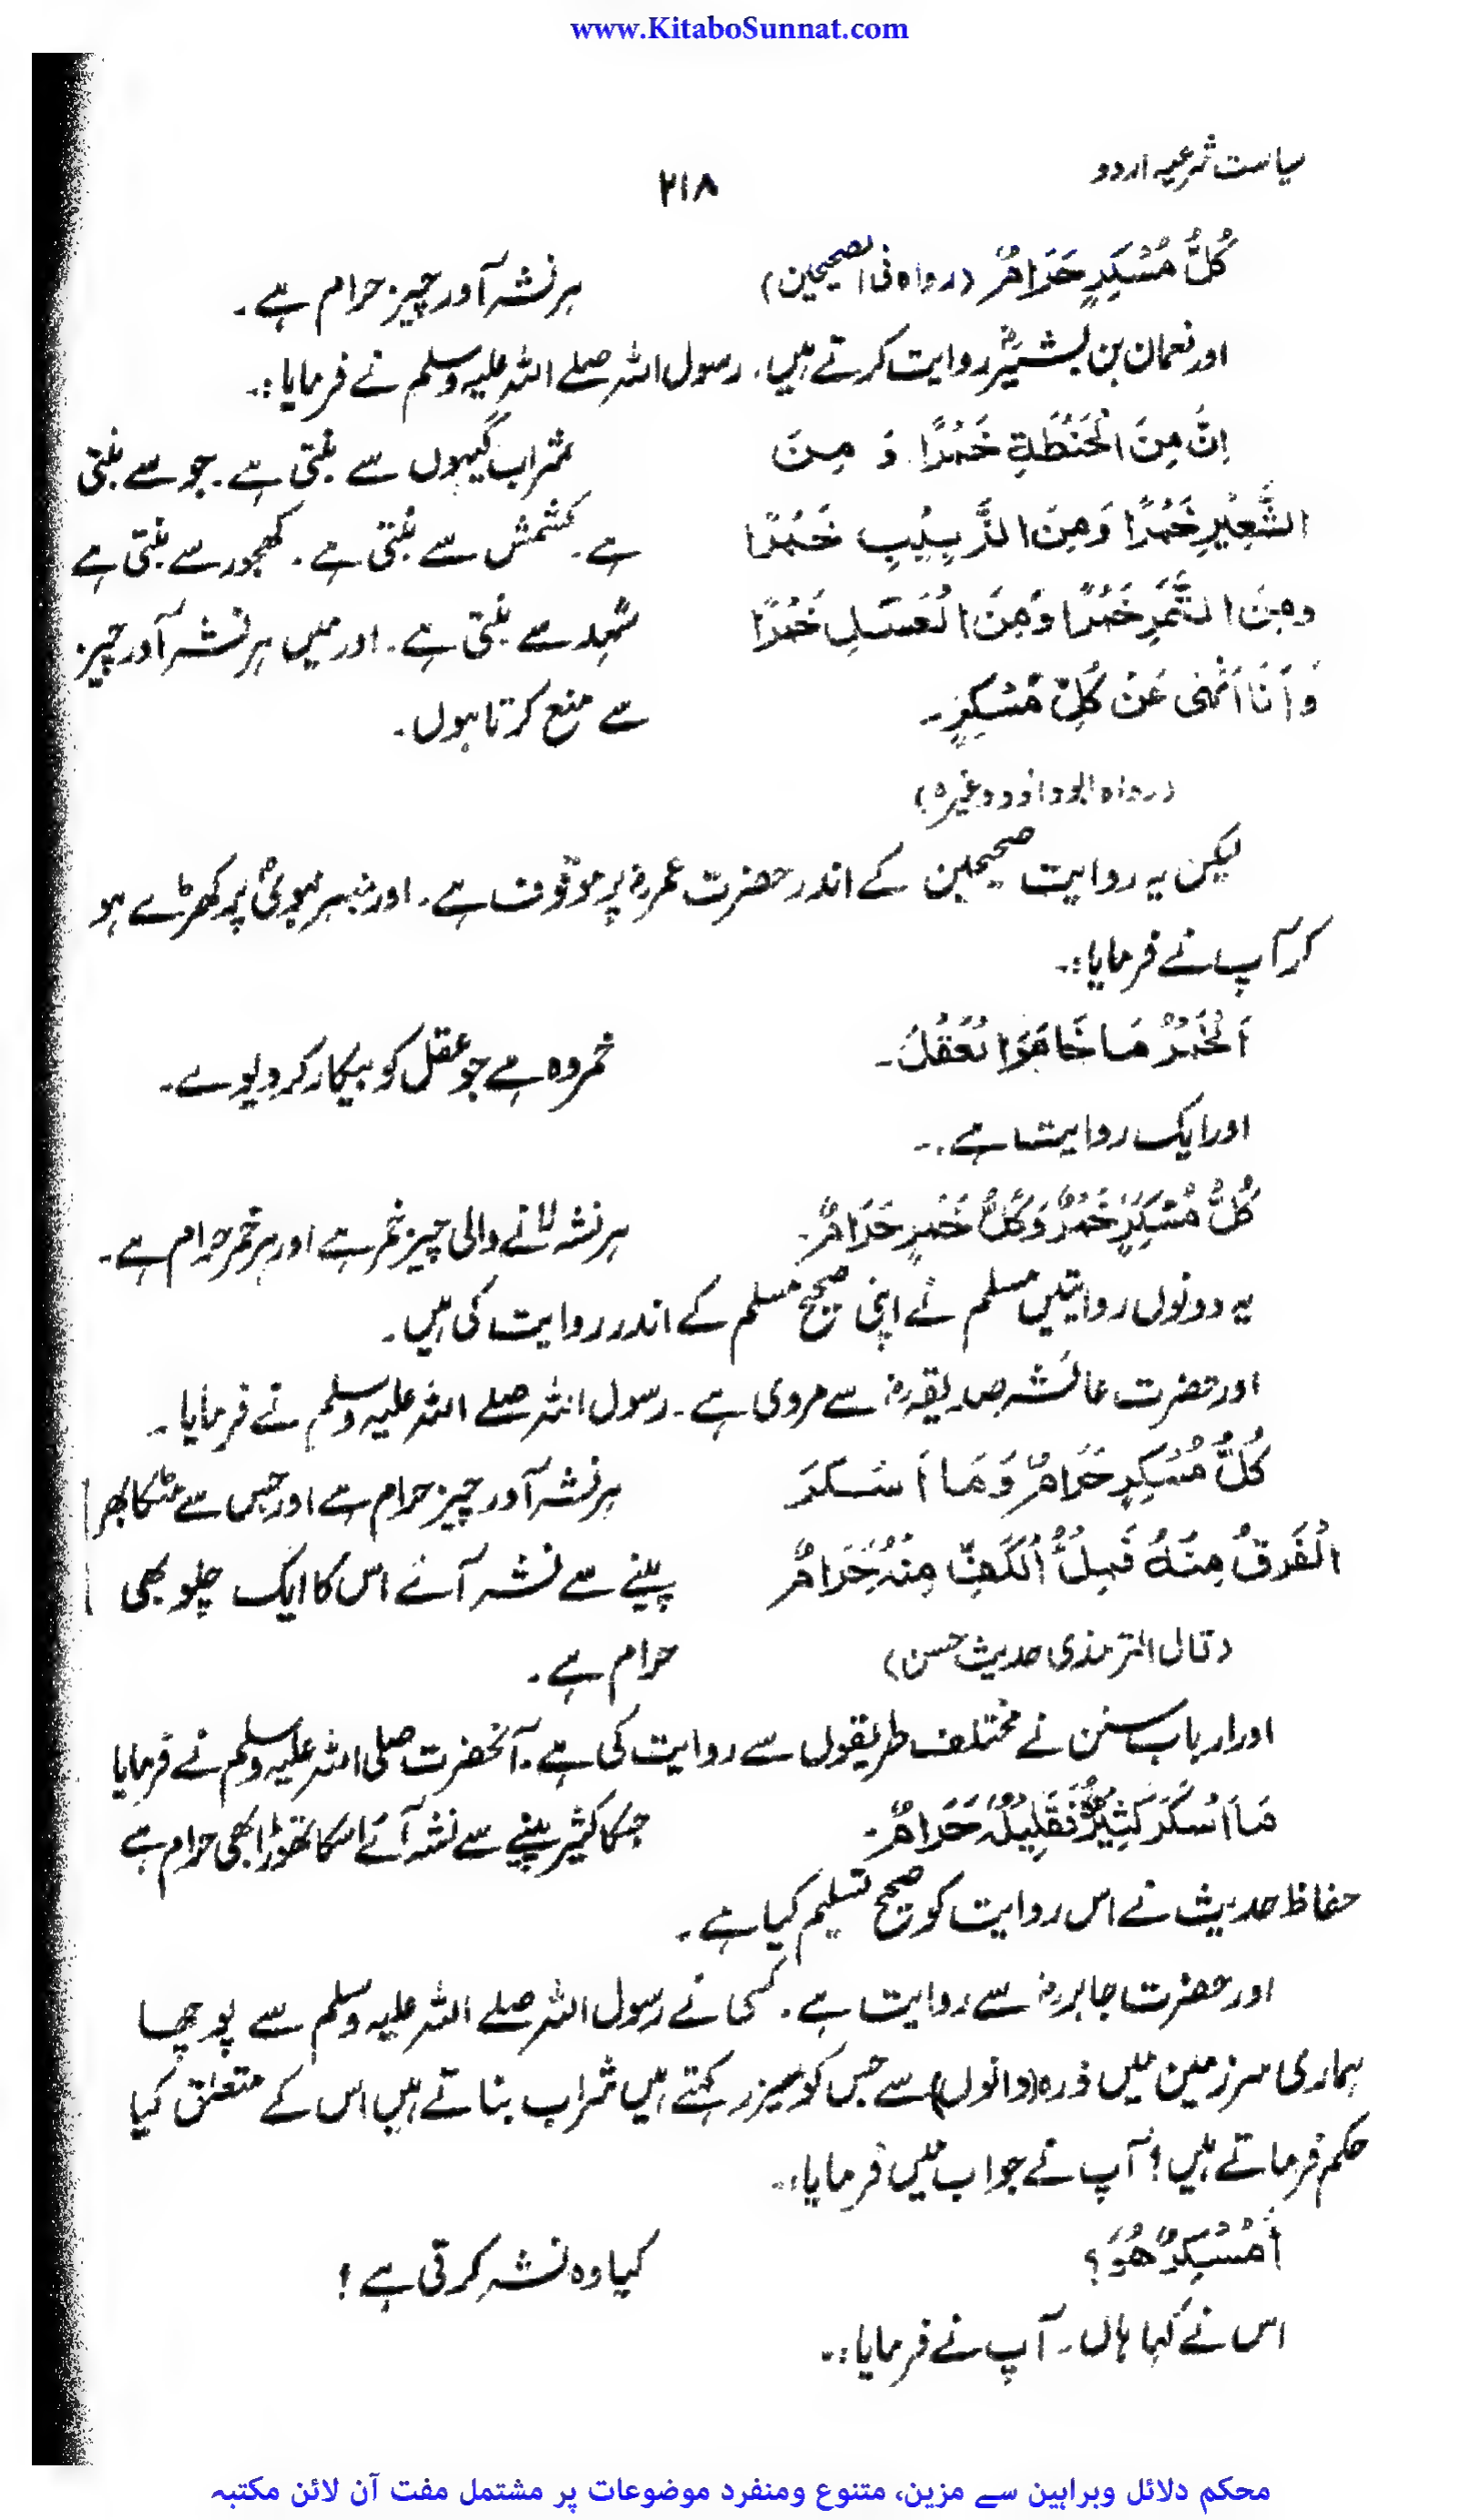 www.KitaboSunnat.com
سیاست شرعیہ اردو
۲۱۸
كُلُّ مُسْكِرٍ حَرَامٌ (رواہ فی الصحیحین) ہر نشہ آور چیز حرام ہے۔
اور نعمان بن بشیرؓ روایت کرتے ہیں۔ رسول اللہ صلے اللہ علیہ وسلم نے فرمایا:۔
اِنَّ مِنَ الْحَنْطَةِ خَمْرًا وَ مِنَ شراب گیہوں سے بنتی ہے۔ جو سے بنتی
الشَّعِيْرِ خَمْرًا وَمِنَ الزَّبِيْبِ خَمْرًا ہے۔ کشمش سے بنتی ہے۔ کھجور سے بنتی ہے
وَمِنَ التَّمَرِ خَمْرًا وَمِنَ الْعَسَلِ خَمْرًا شہد سے بنتی ہے۔ اور میں ہر نشہ آور چیز
وَ اَنَا اَنْهٰى عَنْ كُلِّ مُسْكِرٍ۔ سے منع کرتا ہوں۔
(رواہ ابوداؤد وغیرہ)
لیکن یہ روایت صحیحین کے اندر حضرت عمرؓ پر موقوف ہے۔ اور منبر نبویؐ پر کھڑے ہو
کر آپ نے فرمایا:۔
اَلْخَمْرُ مَا خَامَرَ الْعَقْلَ۔ خمر وہ ہے جو عقل کو بیکار کر دیوے۔
اور ایک روایت ہے:۔
كُلُّ مُسْكِرٍ خَمْرٌ وَكُلُّ خَمْرٍ حَرَامٌ۔ ہر نشہ لانے والی چیز خمر ہے اور ہر خمر حرام ہے۔
یہ دونوں روایتیں مسلم نے اپنی صحیح مسلم کے اندر روایت کی ہیں۔
اور حضرت عائشہ صدیقہؓ سے مروی ہے۔ رسول اللہ صلے اللہ علیہ وسلم نے فرمایا۔
كُلُّ مُسْكِرٍ حَرَامٌ وَ مَا اَسْكَرَ ہر نشہ آور چیز حرام ہے اور جس سے مٹکا بھر
الْفَرَقُ مِنْهُ فَمِلْأُ الْكَفِّ مِنْهُ حَرَامٌ پینے سے نشہ آئے اس کا ایک چلو بھی
(قال الترمذی حدیث حسن) حرام ہے۔
اور ارباب سنن نے مختلف طریقوں سے روایت کی ہے۔ آنحضرت صلی اللہ علیہ وسلم نے فرمایا
مَا اَسْكَرَ كَثِيْرُهٗ فَقَلِيْلُهٗ حَرَامٌ۔ جسکا کثیر پینے سے نشہ آئے اسکا تھوڑا بھی حرام ہے
حفاظ حدیث نے اس روایت کو صحیح تسلیم کیا ہے۔
اور حضرت جابرؓ سے روایت ہے۔ کسی نے رسول اللہ صلے اللہ علیہ وسلم سے پوچھا
ہماری سرزمین میں ذرہ (دانوں) سے جس کو میزر کہتے ہیں شراب بناتے ہیں اس کے متعلق کیا
حکم فرماتے ہیں؟ آپ نے جواب میں فرمایا:۔
اَمُسْكِرٌ هُوَ؟ کیا وہ نشہ کرتی ہے؟
اس نے کہا ہاں۔ آپ نے فرمایا:۔
محکم دلائل وبراہین سے مزین، متنوع ومنفرد موضوعات پر مشتمل مفت آن لائن مکتبہ